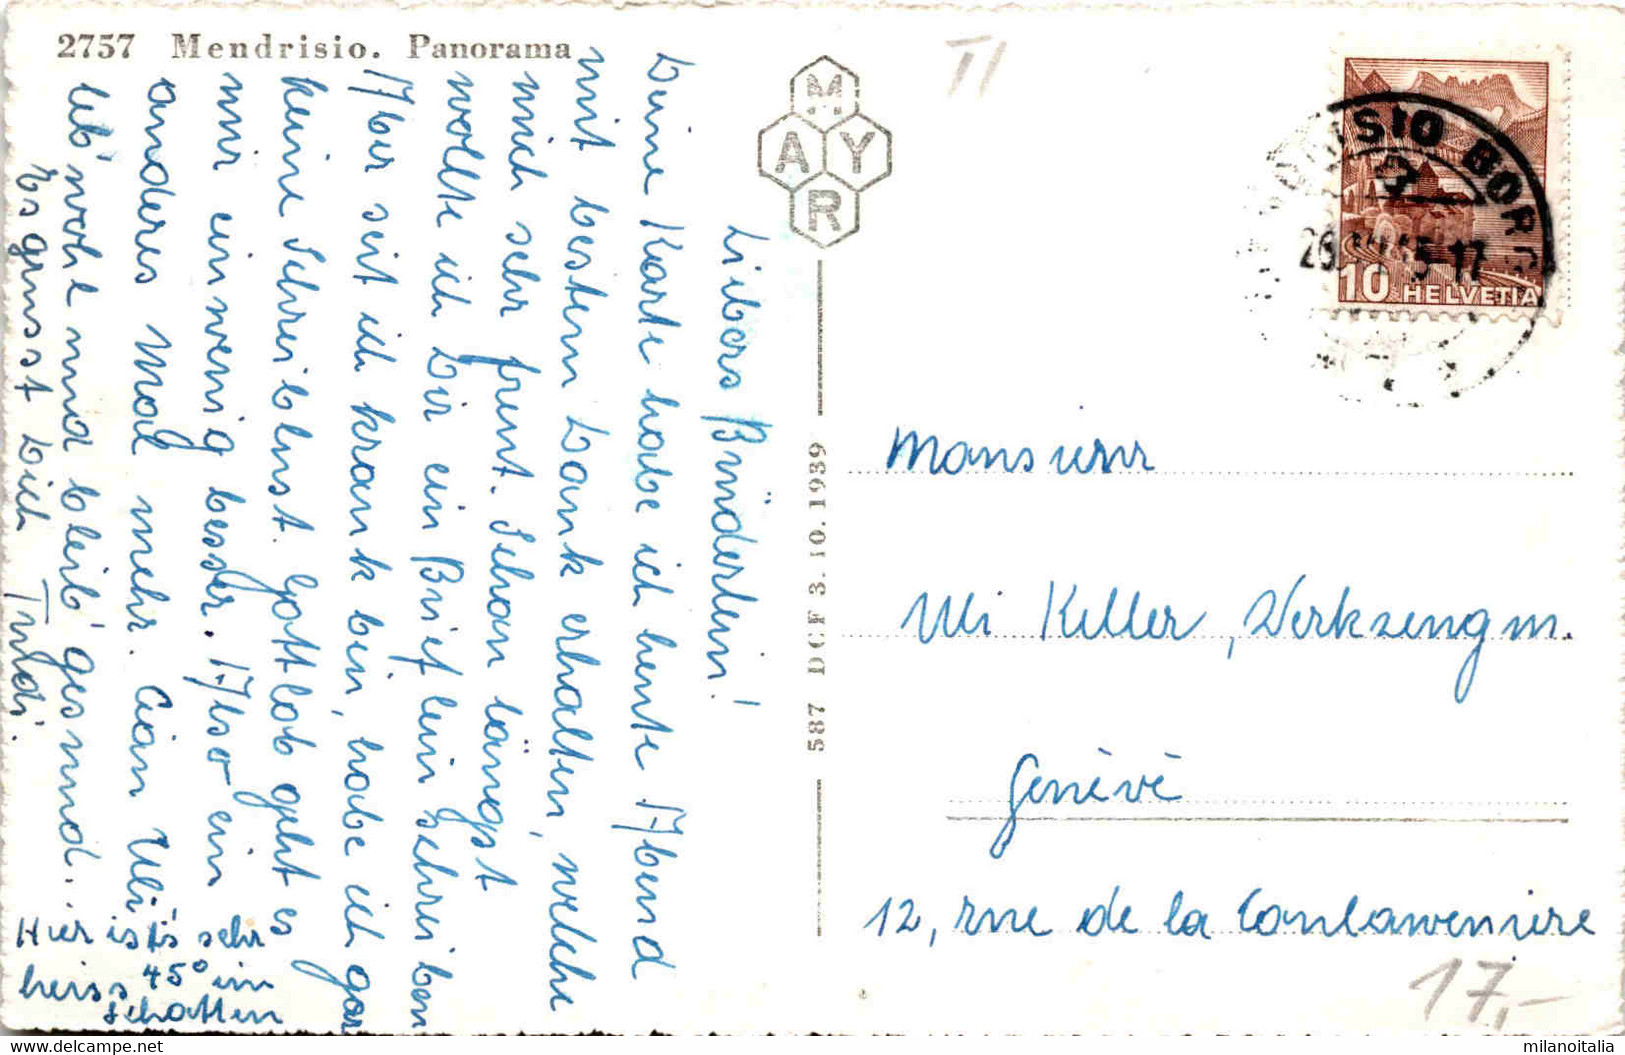 2757 Mendrisio. Panorama
Liebers Brüderlein!
Deine Karte habe ich heute Abend
mit bestem Dank erhalten, welche
mich sehr freut. Schon längst
wollte ich Dir ein Brieflein schreiben
Aber seit ich krank bin, habe ich gar
keine Schreiblust. Gottlob geht es
mir ein wenig besser. Also ein
anderes Mal mehr. Ciau Uli
leb' wohl und bleib' gesund.
Es grüsst Dich Trudi.
Hier ist's sehr
heiss 45° im
Schatten
MAYR
587 DCF 3.10.1939
TI
DRISIO BORG
10 HELVETIA
Monsieur
Uli Keller, Werkzeugm.
Genévé
12, rue de la Coulouvrenière
17,-
milanoitalia